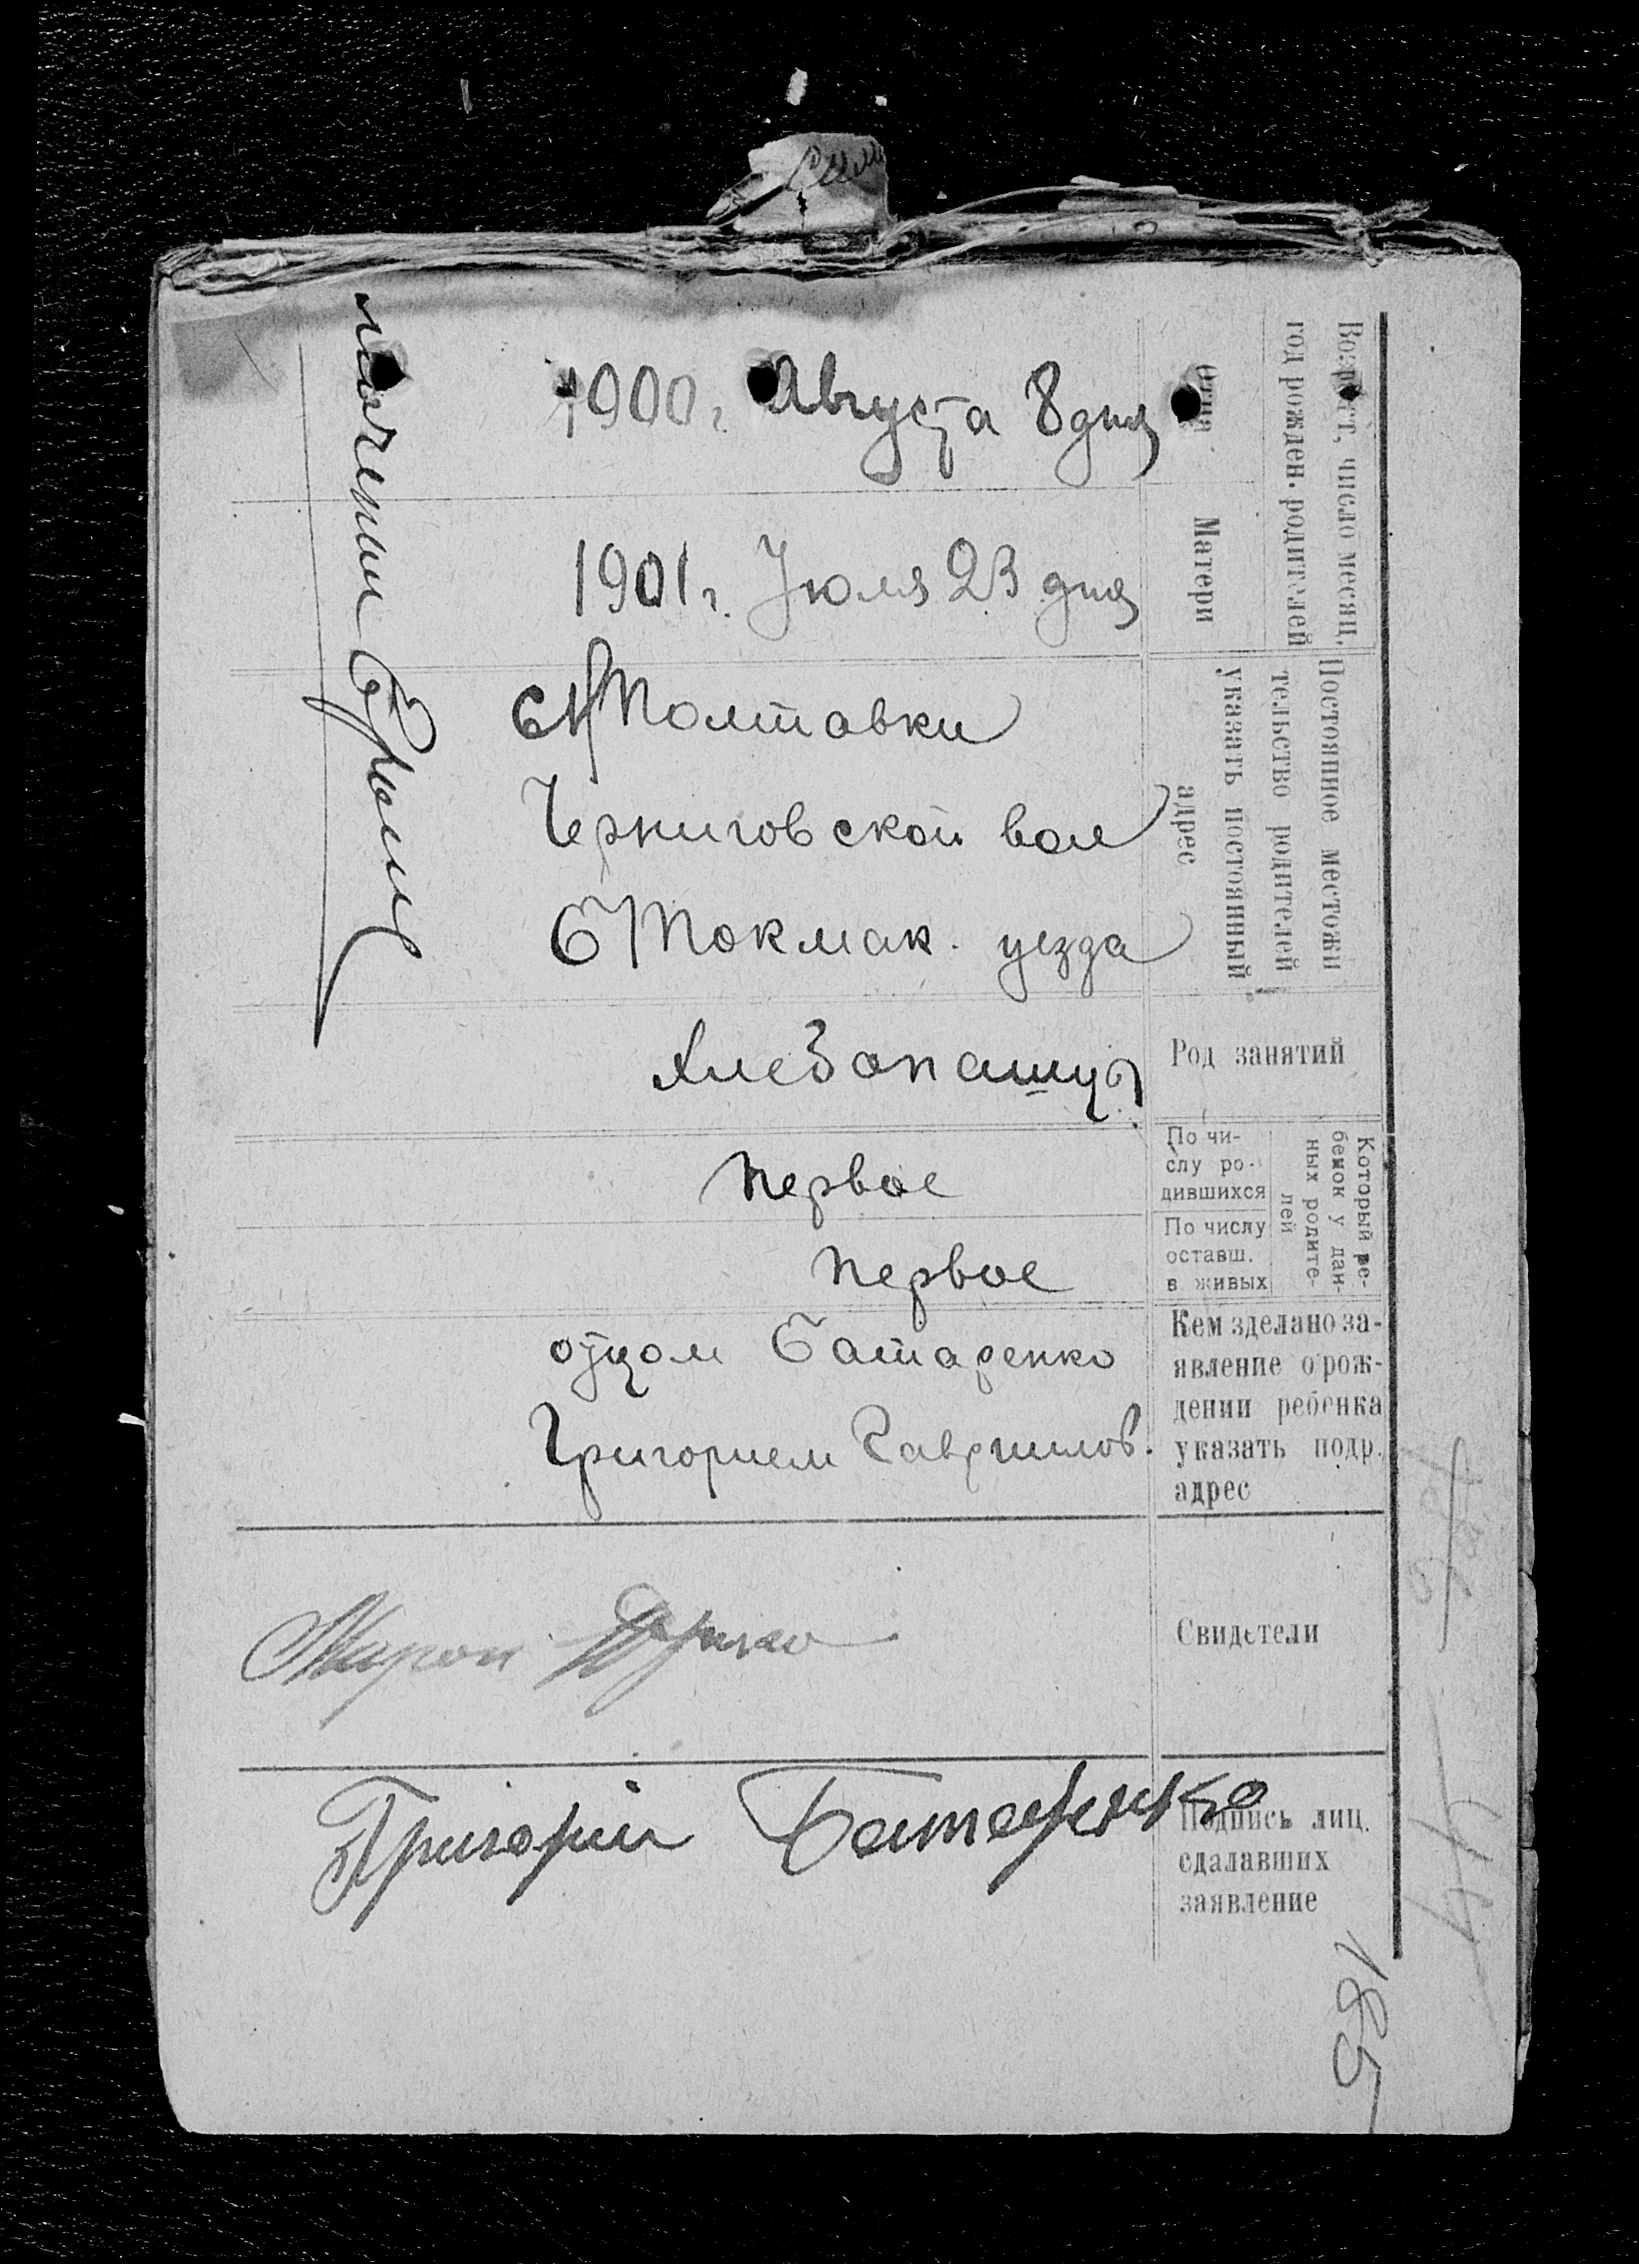 Возраст, число месяц,
год рожден. родителей
Отца
1900 г. Августа 8 дня
Матери
1901 г. Июля 23 дня
Постоянное местожи
тельство родителей
указать постоянный
адрес
Полтавки
Черниговской вол
Б Токмак. уезда
Род занятий
Хлебопашцы
Который ре-
бенок у дан-
ных родите-
лей
По чи-
слу ро-
дившихся
Первое
По числу
оставш.
в живых
Первое
Кем зделано за-
явление о рож-
дении ребенка
указать подр.
адрес
отцом Батаренко
Григорием Гаврилов.
Свидетели
Мирон
Подпись лиц.
сдалавших
заявление
Григорій Батаренко
185